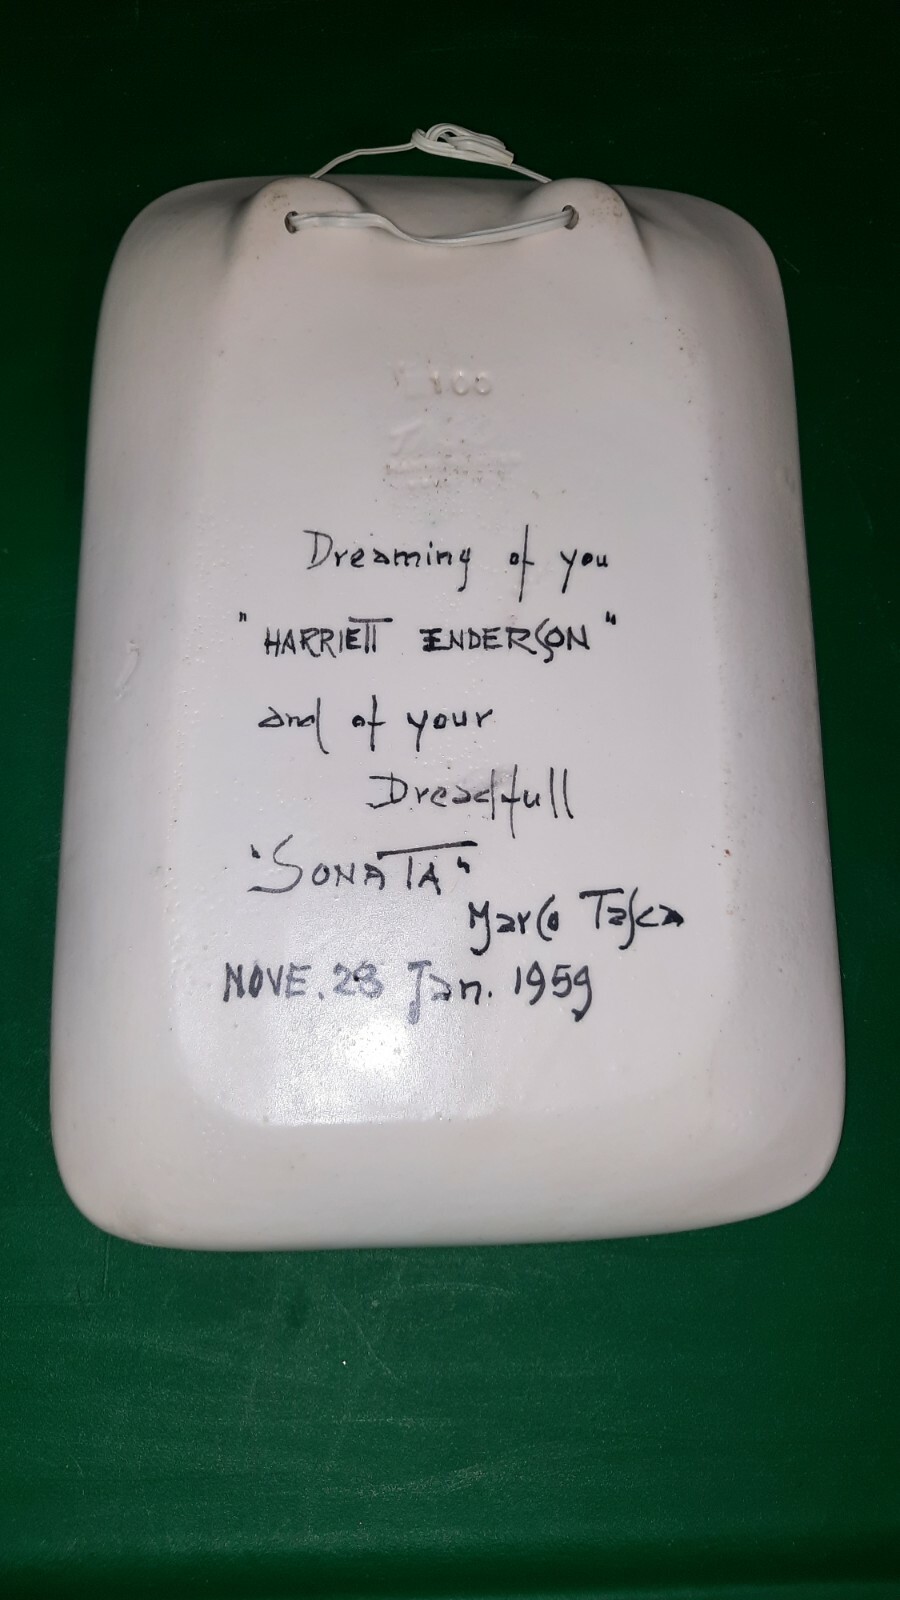 Dreaming of you
"HARRIETT ENDERSON"
and of your
Dreadfull
"SONATA"
Marco Tasca
NOVE. 28 Jan. 1959